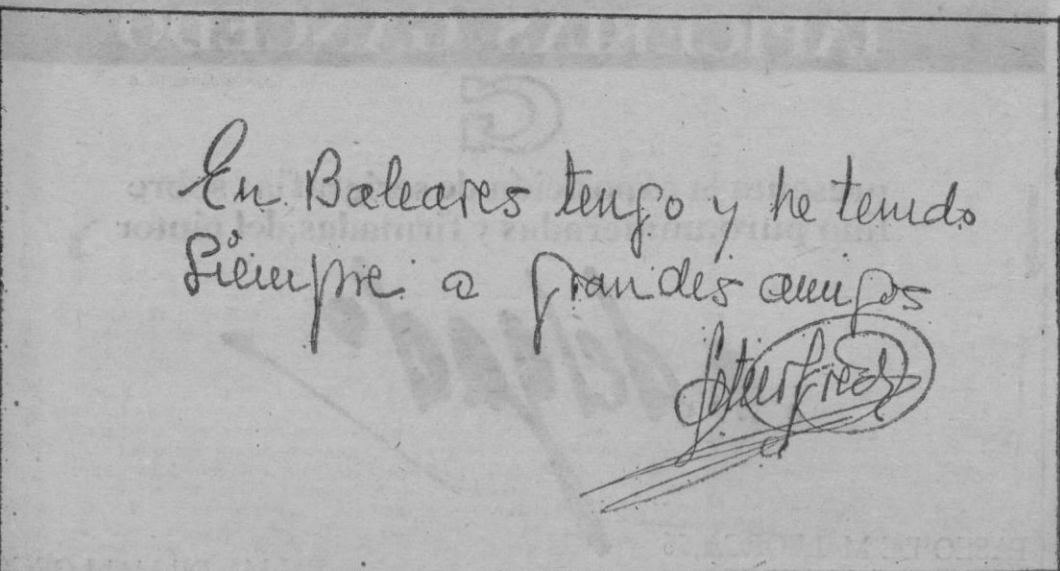 En Baleares tengo y he tenido
siempre a grandes amigos